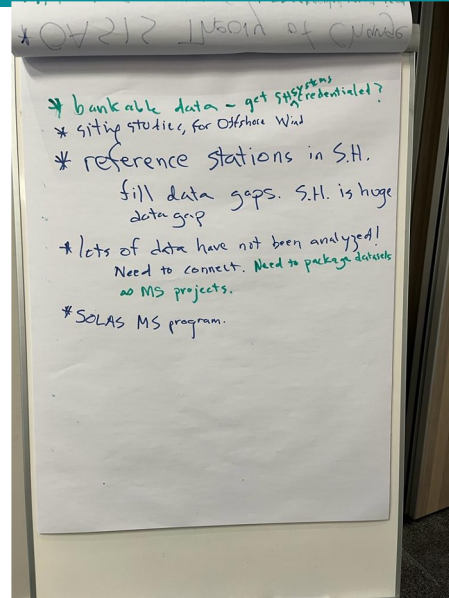 * bankable data - get systems credentialed?
* siting studies, for Offshore Wind
* reference stations in S.H.
fill data gaps. S.H. is huge
data gap
* lots of data have not been analyzed!
Need to connect. Need to package datasets
as MS projects.
* SOLAS MS program.